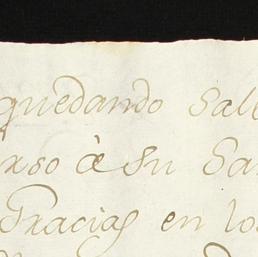 quedando Sall
rso à su San
Gracias en lo